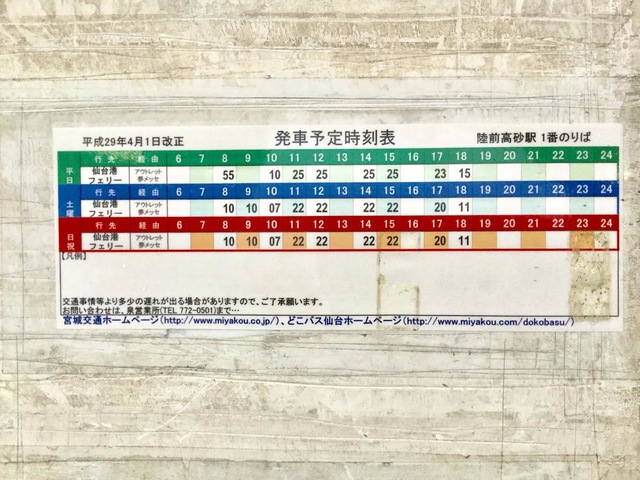 平成29年4月1日改正 発車予定時刻表 陸前高砂駅 1番のりば
平日 行先 経由 6 7 8 9 10 11 12 13 14 15 16 17 18 19 20 21 22 23 24
仙台港フェリー アウトレット夢メッセ 55 10 25 25 25 25 23 15
土曜 行先 経由 6 7 8 9 10 11 12 13 14 15 16 17 18 19 20 21 22 23 24
仙台港フェリー アウトレット夢メッセ 10 10 07 22 22 22 22 20 11
日祝 行先 経由 6 7 8 9 10 11 12 13 14 15 16 17 18 19 20 21 22 23 24
仙台港フェリー アウトレット夢メッセ 10 10 07 22 22 22 22 20 11
【凡例】
交通事情等より多少の遅れが出る場合がありますので、ご了承願います。
お問い合わせは、泉営業所(TEL 772-0501)まで…
宮城交通ホームページ(http://www.miyakou.co.jp/)、どこバス仙台ホームページ(http://www.miyakou.com/dokobasu/)